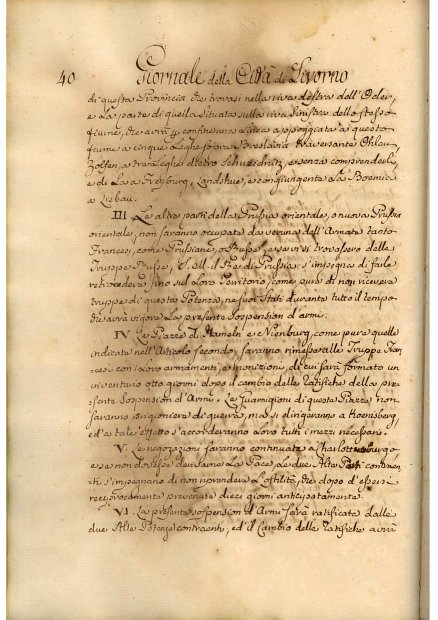 40 Giornale della Città di Livorno
di questa Provincia che trovasi nella riva destra dell'Oder,
e la parte di quella situata sulla riva sinistra dello stesso
fiume, che avrà per confine una linea appoggiata a questo
fiume a cinque Leghe sopra Breslavia traversante Ohlau,
Zolfen, a tre Leghe dietro Schweidnitz, e senza comprenderle
e di là a Freyburg, Landshut, e congiungente la Boemia
a Liebau.
III Le altre parti della Prussia orientale, o nuova Prussia
orientale, non saranno occupate da veruna dell'Armate tanto
Francesi, come Prussiane, o Russe, e se vi si trovassero delle
Truppe Russe, S. M. il Re di Prussia s'impegna di farle
retrocedere fino sul Loro Territorio, come pure di non ricevere
truppe di questa Potenza, ne suoi Stati durante tutto il tempo
che avrà vigore la presente sospension d'armi.
IV. Le Piazze di Hameln e Nienburg, come pure quelle
indicate nell'Articolo secondo, saranno rimesse alle Truppe Fran
cesi con i loro armamenti, e munizioni, di cui sarà formato un
inventario otto giorni dopo il cambio delle Ratifiche della pre
sente sospension d'Armi. Le Guarnigioni di queste Piazze non
saranno prigioniere di guerra, ma si dirigeranno a Koenisberg,
ed a tale effetto s'accorderanno loro tutti i mezzi necessari.
V. Le negoziazioni saranno continuate a Charlottenburgo
e se non dovesse derivarne la Pace, le due Alte Parti contraen
ti s'impegnano di non riprendere l'ostilità, che dopo d'essersi
reciprocamente prevenute dieci giorni anticipatamente.
VI. La presente sospension d'Armi sarà ratificata dalle
due Alte Potenze contraenti, ed il Cambio delle Ratifiche avrà